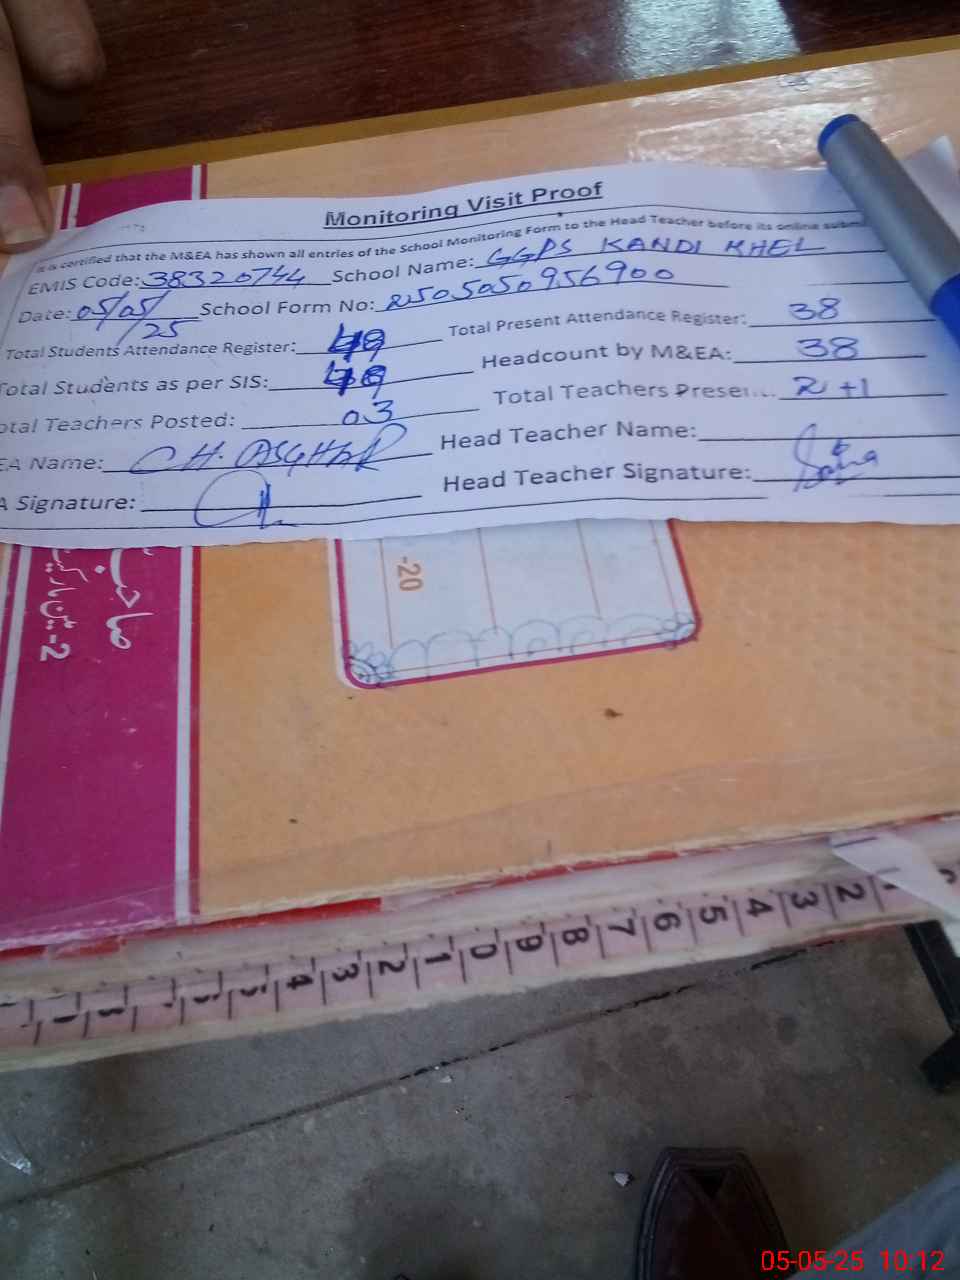 Monitoring Visit Proof
It is certified that the M&EA has shown all entries of the School Monitoring Form to the Head Teacher before its online
EMIS Code: 38320744 School Name: GGPS KANDI KHEL
Date: 05/05/25 School Form No: 2505050956900
Total Students Attendance Register: Total Present Attendance Register: 38
Total Students as per SIS: Headcount by M&EA: 38
otal Teachers Posted: 03 Total Teachers Presen... 2 +1
EA Name: CH. ASGHAR Head Teacher Name:
A Signature: Head Teacher Signature:
-20
صاحب
2-
2 3 4 5 6 7 8 9 0 1 2 3 4
05-05-25 10:12